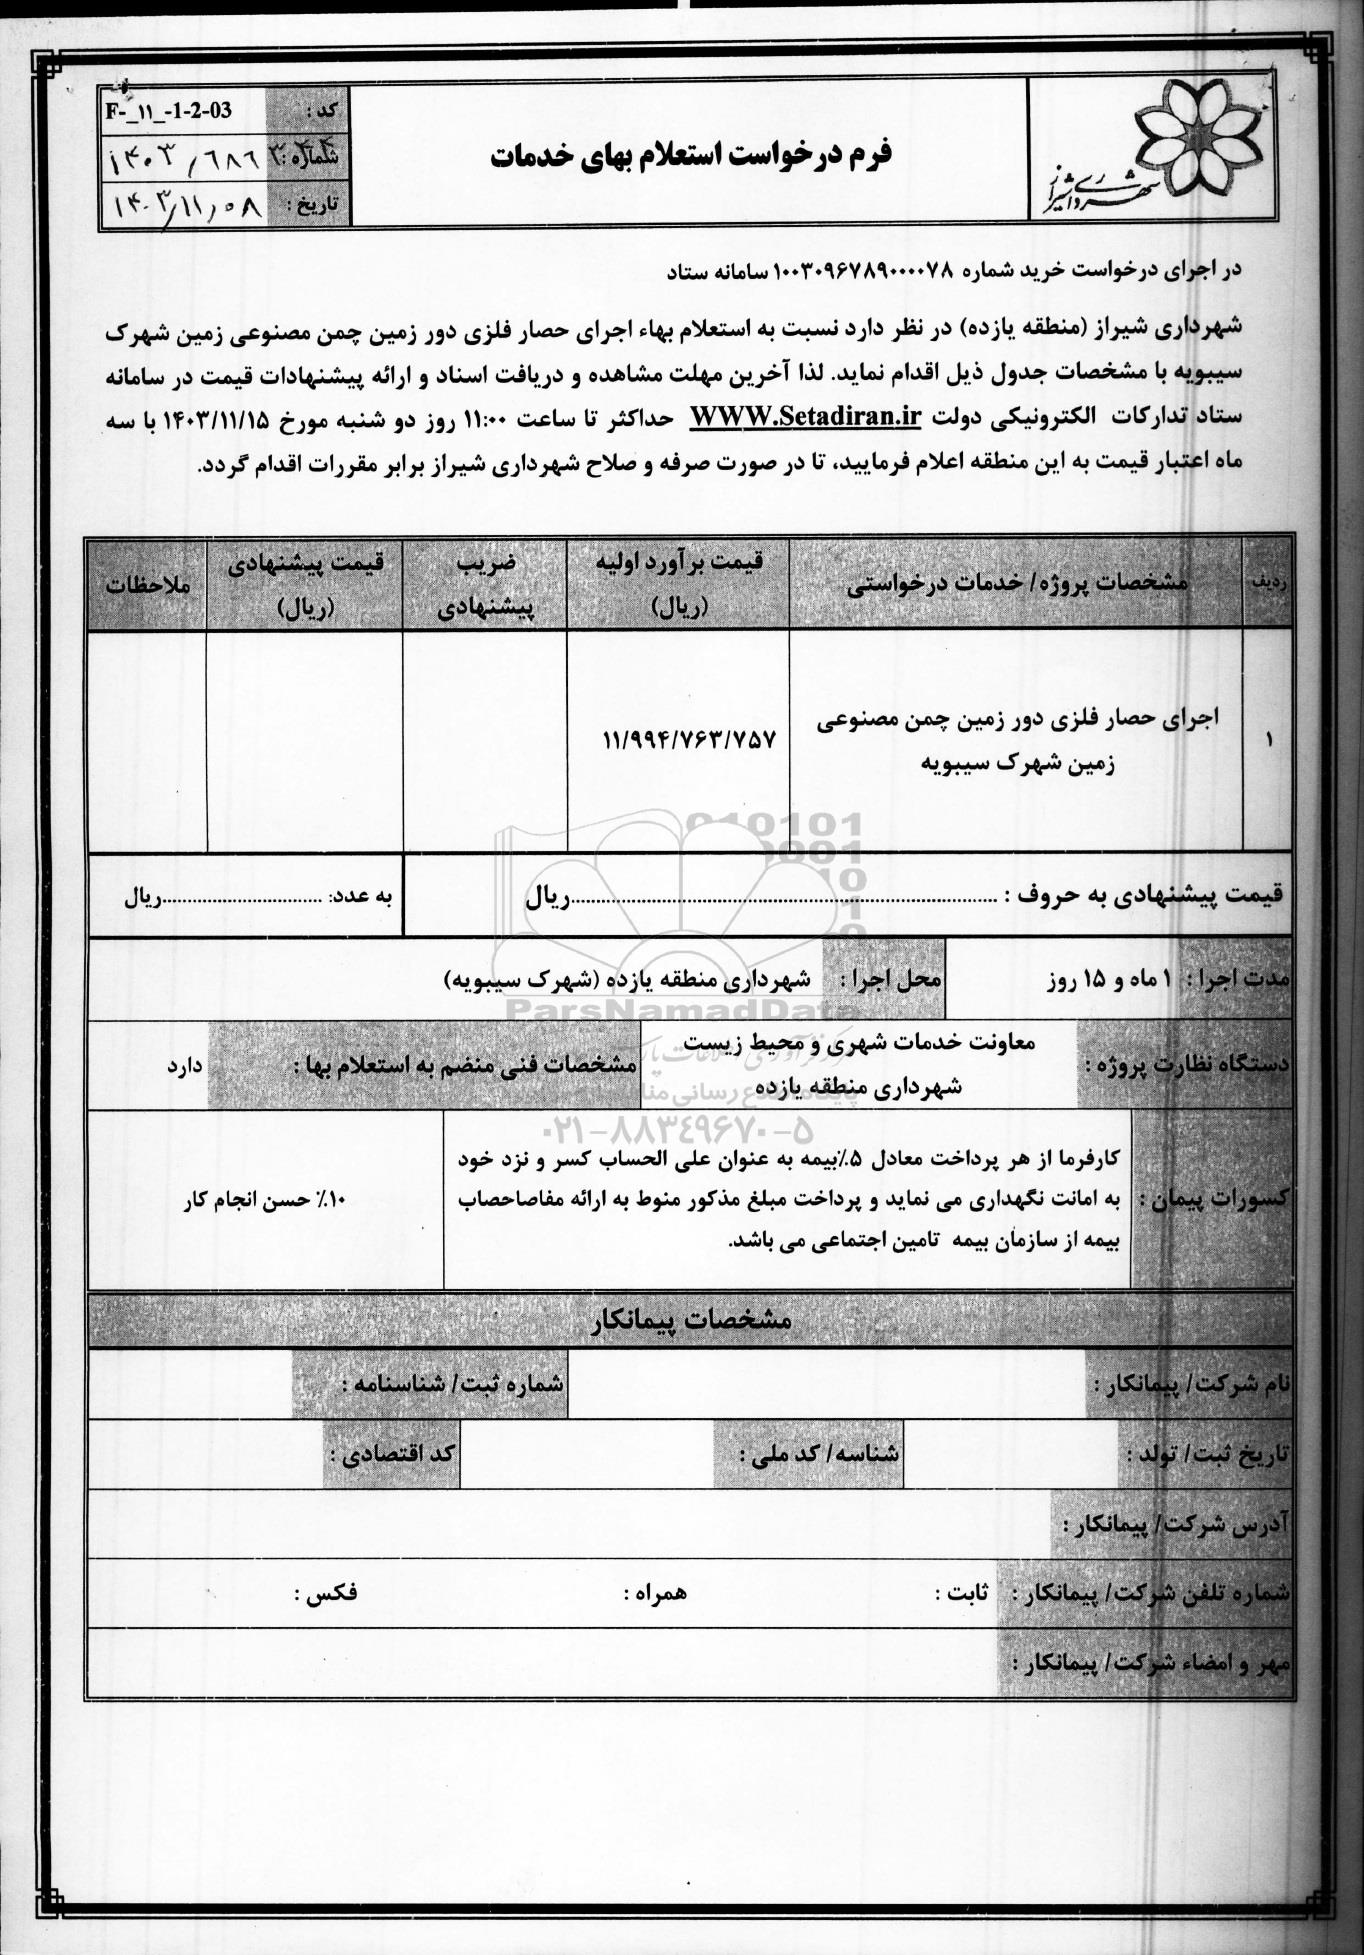 شهرداری شیراز
فرم درخواست استعلام بهای خدمات
کد : F-_۱۱_-1-2-03
شماره :
تاریخ : ۱۴۰۳/۱۱/۰۸
در اجرای درخواست خرید شماره ۱۰۰۳۰۹۶۷۸۹۰۰۰۰۷۸ سامانه ستاد
شهرداری شیراز (منطقه یازده) در نظر دارد نسبت به استعلام بهاء اجرای حصار فلزی دور زمین چمن مصنوعی زمین شهرک
سیبویه با مشخصات جدول ذیل اقدام نماید. لذا آخرین مهلت مشاهده و دریافت اسناد و ارائه پیشنهادات قیمت در سامانه
ستاد تدارکات الکترونیکی دولت WWW.Setadiran.ir حداکثر تا ساعت ۱۱:۰۰ روز دو شنبه مورخ ۱۴۰۳/۱۱/۱۵ با سه
ماه اعتبار قیمت به این منطقه اعلام فرمایید، تا در صورت صرفه و صلاح شهرداری شیراز برابر مقررات اقدام گردد.
ردیف مشخصات پروژه/ خدمات درخواستی قیمت برآورد اولیه (ریال) ضریب پیشنهادی قیمت پیشنهادی (ریال) ملاحظات
۱ اجرای حصار فلزی دور زمین چمن مصنوعی ۱۱/۹۹۴/۷۶۳/۷۵۷
زمین شهرک سیبویه
قیمت پیشنهادی به حروف : ........................................ریال به عدد: ................................ریال
مدت اجرا : ۱ ماه و ۱۵ روز محل اجرا : شهرداری منطقه یازده (شهرک سیبویه)
ParsNamadData
دستگاه نظارت پروژه : معاونت خدمات شهری و محیط زیست
شهرداری منطقه یازده مشخصات فنی منضم به استعلام بها : دارد
۰۲۱-۸۸۳۴۹۶۷۰-۵
کسورات پیمان : کارفرما از هر پرداخت معادل ۵٪بیمه به عنوان علی الحساب کسر و نزد خود
به امانت نگهداری می نماید و پرداخت مبلغ مذکور منوط به ارائه مفاصاحصاب
بیمه از سازمان بیمه تامین اجتماعی می باشد.
۱۰٪ حسن انجام کار
مشخصات پیمانکار
نام شرکت/ پیمانکار : شماره ثبت/ شناسنامه :
تاریخ ثبت/ تولد : شناسه/ کد ملی : کد اقتصادی :
آدرس شرکت/ پیمانکار :
شماره تلفن شرکت/ پیمانکار : ثابت : همراه : فکس :
مهر و امضاء شرکت/ پیمانکار :